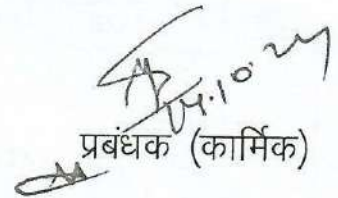 04.10.24
प्रबंधक (कार्मिक)